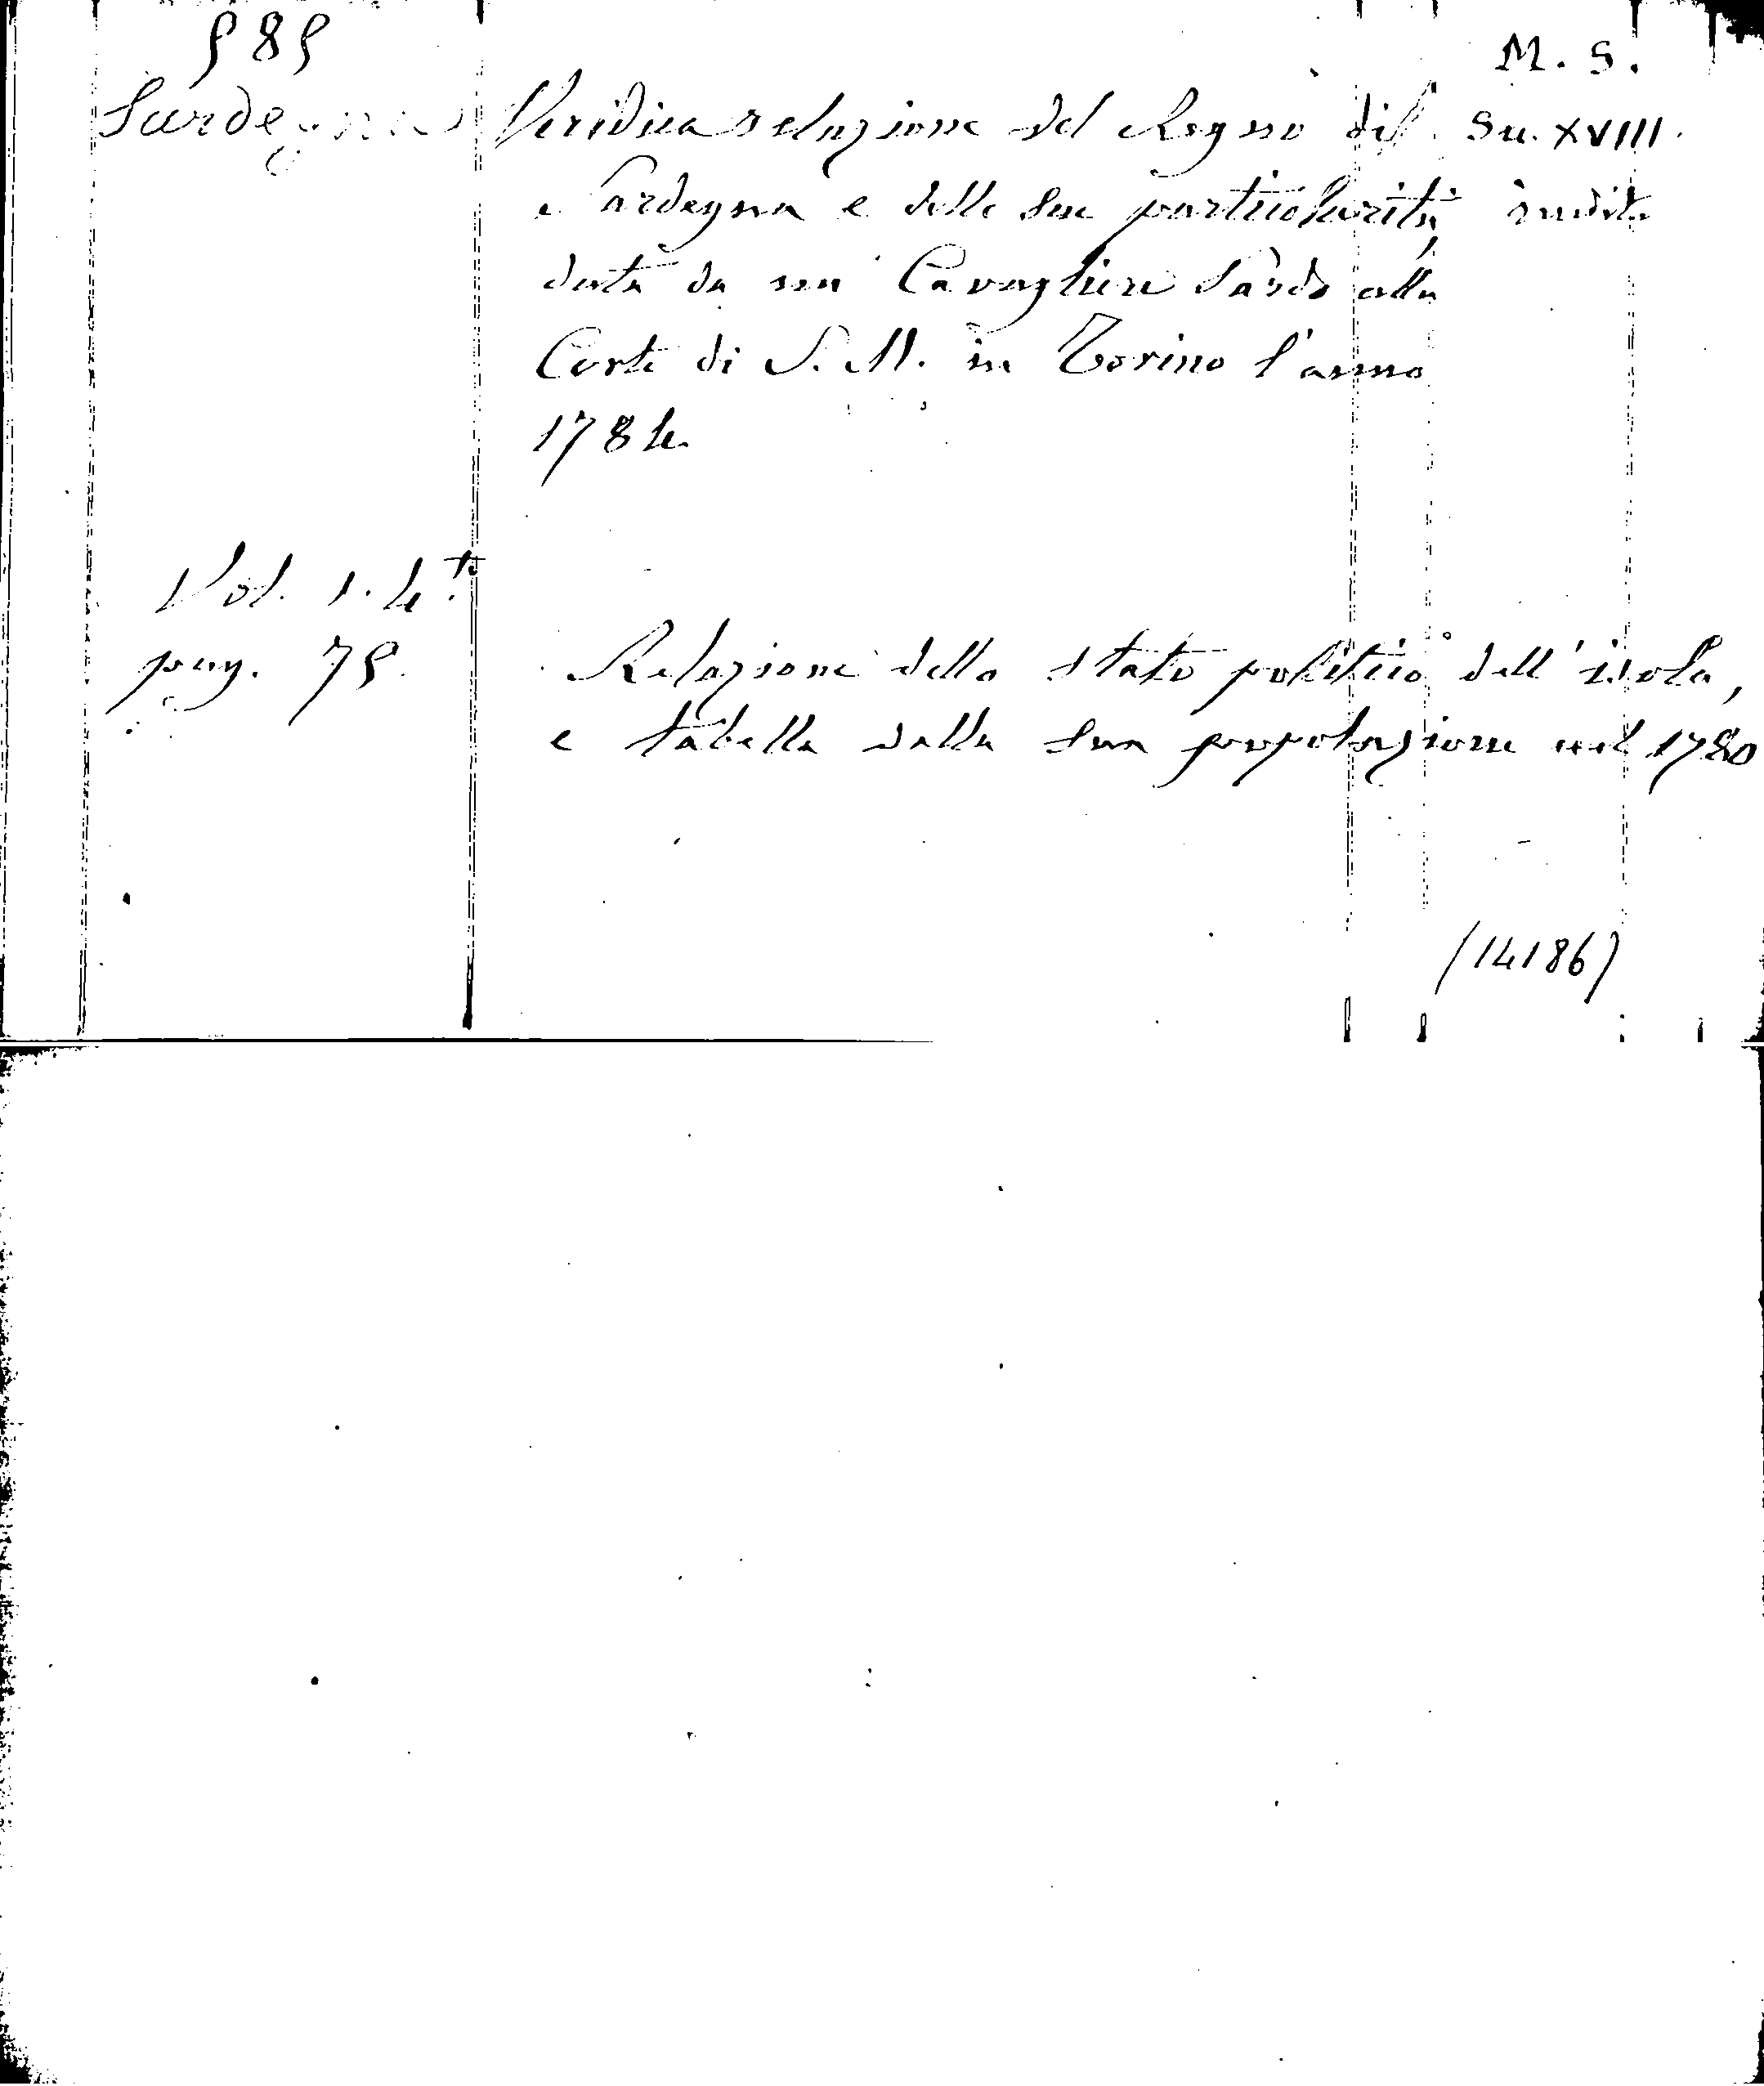 585 M. S.
Sardegna Veridica relazione del Regno di Sec. XVIII.
Sardegna e delle sue particolarità, inedita
data da un Cavagliere Sardo alla
Corte di S. M. in Torino l'anno
1784.
Vol. 1. 4.to
pag. 75. Relazione dello stato politico dell'isola,
e tabella della sua popolazione nel 1780
(14186)